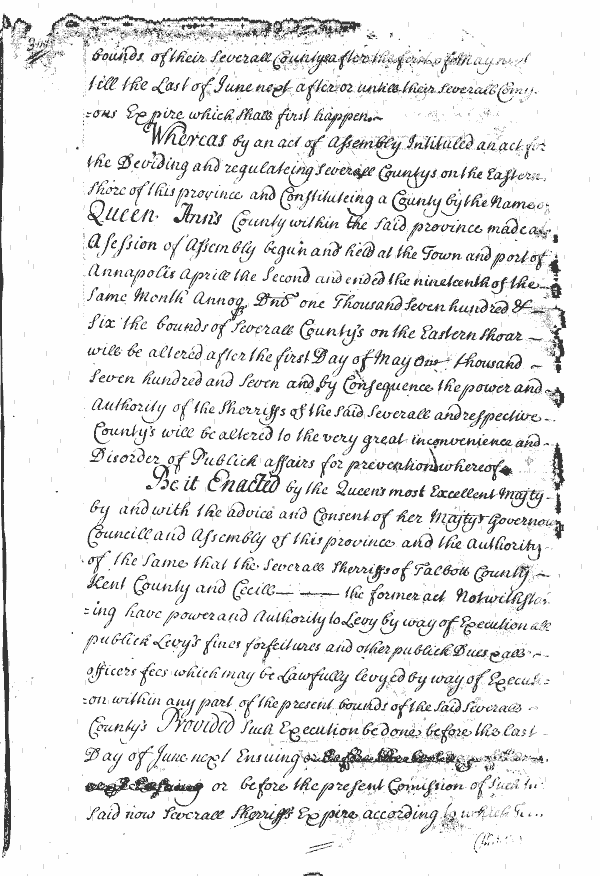 bounds of their Severall Countys after the first of May next
till the Last of June next after or untill their Severall Comy
=ons Expire which shall first happen
Whereas by an act of Assembly Intituled an act for
the Deviding and regulateing Severall Countys on the Eastern
Shore of this province and Constituteing a County by the Name
Queen Ann's County within the Said province made
A Session of Assembly begun and held at the Town and port of
Annapolis Aprill the Second and ended the nineteenth of the
Same Month Annoq Dno one Thousand Seven hundred &
Six the bounds of Severall County's on the Eastern Shoar
will be altered after the first Day of May One thousand
Seven hundred and Seven and by Consequence the power and
Authority of the Sherriffs of the Said Severall and respective
County's will be altered to the very great inconvenience and
Disorder of Publick affairs for prevention whereof
Be it Enacted by the Queen's most Excellent Majty
by and with the advice and Consent of her Majtys Governour
Councill and Assembly of this province and the Authority
of the Same that the Severall Sherriffs of Talbott County
Kent County and Cecill the former act Notwithstan
=ing have power and Authority to Levy by way of Execution all
publick Levy's fines forfeitures and other publick Dues
officers fees which may be Lawfully levyed by way of Executi
=on within any part of the present bounds of the Said Severall
County's Provided Such Execution be done before the last
Day of June next Ensuing
or before the present Comission of Such
Said now Severall Sherriffs Expire according to which